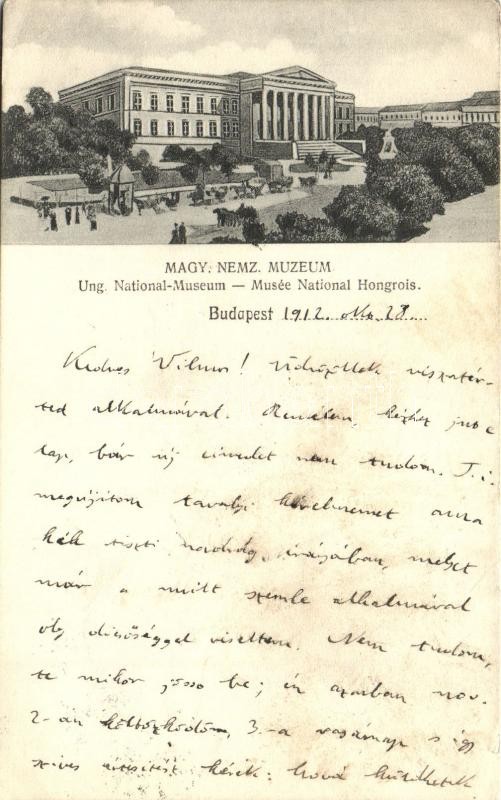 MAGY. NEMZ. MUZEUM.
Ung. National-Museum — Musée National Hongrois.
Budapest 1912. okt. 28.
Kedves Vilmos! Üdvözöllek visszatér-
ted alkalmával. Remélem, kézhez jut e
lap, bár új címedet nem tudom. T. i.
megújítom tavalyi kérelmemet ama
kék tiszti nadrág irányában, melyet
már a mult szemle alkalmával
oly dicsőséggel viseltem. Nem tudom,
te mikor jössz be; én azonban nov.
2-án költözködöm, 3.-a vasárnap s így
szives értesitést kérek: hová küldhetek